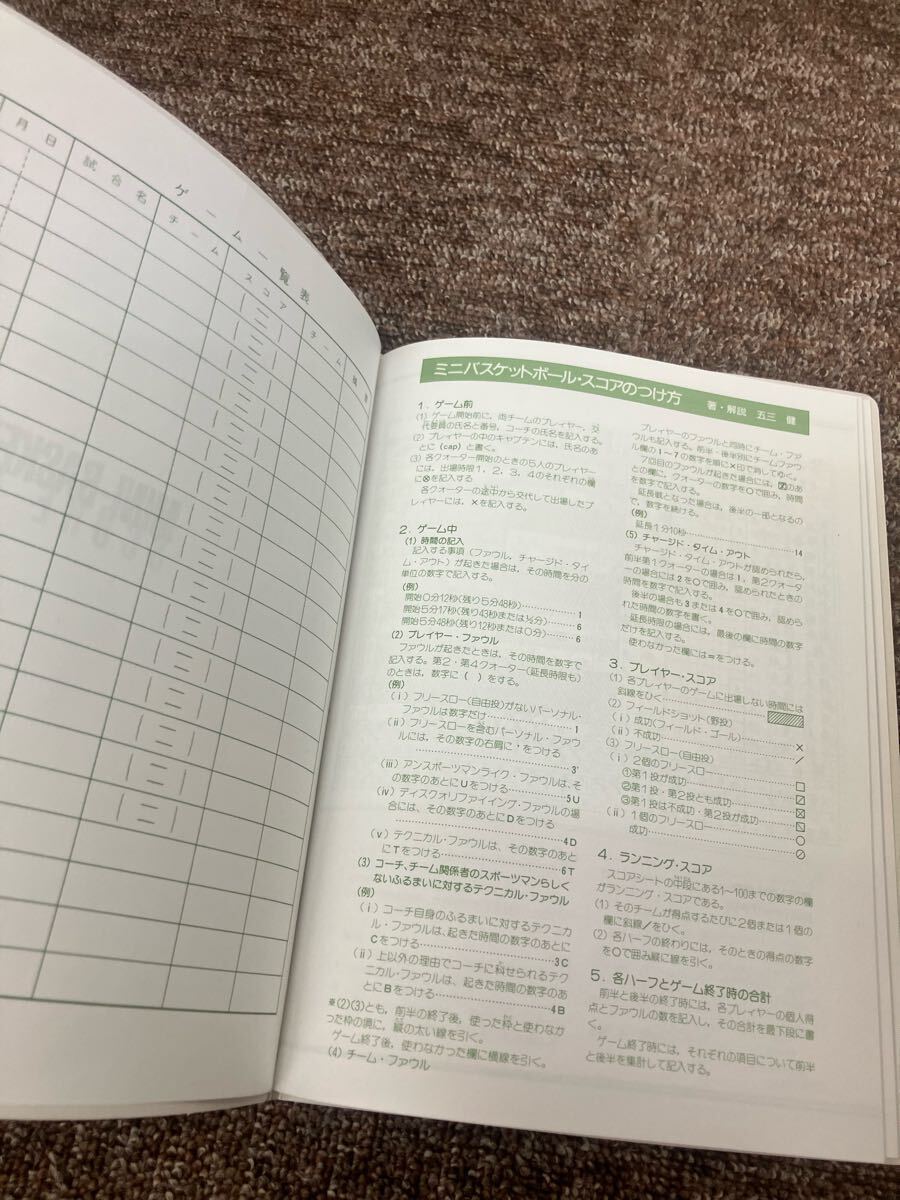 ゲーム一覧表
月日
試合名
チーム
スコア
チーム
ミニバスケットボール・スコアのつけ方
著・解説 五三 健
1. ゲーム前
(1) ゲーム開始前に，両チームのプレイヤー，交
代委員の氏名と番号，コーチの氏名を記入する。
(2) プレイヤーの中のキャプテンには，氏名のあ
とに(cap)と書く。
(3) 各クォーター開始のときの5人のプレイヤー
には，出場時限1，2，3，4のそれぞれの欄
に⊗を記入する
各クォーターの途中から交代して出場したプ
レイヤーには，×を記入する。
2. ゲーム中
(1) 時間の記入
記入する事項（ファウル，チャージド・タイ
ム・アウト）が起きた場合は，その時間を分の
単位の数字で記入する。
(例)
開始0分12秒(残り5分48秒)…………… 1
開始5分17秒(残り43秒または½分)……… 6
開始5分48秒(残り12秒または0分)……… 6
(2) プレイヤー・ファウル
ファウルが起きたときは，その時間を数字で
記入する。第2・第4クォーター(延長時限も)
のときは，数字に( )をする。
(例)
(ⅰ) フリースロー(自由投)がないパーソナル・
ファウルは数字だけ…………… 1
(ⅱ) フリースローを含むパーソナル・ファウ
ルには，その数字の右肩に'をつける
…………… 3'
(ⅲ) アンスポーツマンライク・ファウルは，そ
の数字のあとにUをつける…………… 5U
(ⅳ) ディスクォリファイイング・ファウルの場
合には，その数字のあとにDをつける
…………… 4D
(ⅴ) テクニカル・ファウルは，その数字のあと
にTをつける…………… 6T
(3) コーチ、チーム関係者のスポーツマンらしく
ないふるまいに対するテクニカル・ファウル
(例)
(ⅰ) コーチ自身のふるまいに対するテクニカ
ル・ファウルは、起きた時間の数字のあとに
Cをつける…………… 3C
(ⅱ) 上以外の理由でコーチに科せられるテク
ニカル・ファウルは，起きた時間の数字のあ
とにBをつける…………… 4B
※(2)(3)とも，前半の終了後，使った枠と使わなか
った枠の境に，縦の太い線を引く。
ゲーム終了後，使わなかった欄に横線を引く。
(4) チーム・ファウル
プレイヤーのファウルと同時にチーム・ファ
ウルも記入する。前半・後半別にチームファウ
ル欄の1〜7の数字を順に×印で消してゆく。
7回目のファウルが起きた場合には，7のあ
との欄に，クォーターの数字を○で囲み，時間
を数字で記入する。
延長戦となった場合は，後半の一部となるの
で，数字を続ける。
(例)
延長1分10秒…………… 14
(5) チャージド・タイム・アウト
チャージド・タイム・アウトが認められたら，
前半第1クォーターの場合は1，第2クォータ
ーの場合には2を○で囲み，認められたときの
時間を数字で記入する。
後半の場合も3または4を○で囲み，認めら
れた時間の数字を書く。
延長時限の場合には，最後の欄に時間の数字
だけを記入する。
使わなかった欄には＝をつける。
3. プレイヤー・スコア
(1) 各プレイヤーのゲームに出場しない時間には
斜線をひく……………
(2) フィールドショット(野投)
(ⅰ) 成功(フィールド・ゴール)…………… ×
(ⅱ) 不成功…………… ／
(3) フリースロー(自由投)
(ⅰ) 2個のフリースロー…………… □
①第1投が成功…………… ⍁
②第1投・第2投とも成功…………… ☒
③第1投は不成功・第2投が成功…………… ⍂
(ⅱ) 1個のフリースロー…………… ○
成功…………… ⊘
4. ランニング・スコア
スコアシートの中段にある1〜100までの数字の欄
がランニング・スコアである。
(1) そのチームが得点するたびに2個または1個の
欄に斜線／をひく。
(2) 各ハーフの終わりには，そのときの得点の数字
を○で囲み縦に線を引く。
5. 各ハーフとゲーム終了時の合計
前半と後半の終了時には，各プレイヤーの個人得
点とファウルの数を記入し，その合計を最下段に書
く。
ゲーム終了時には，それぞれの項目について前半
と後半を集計して記入する。